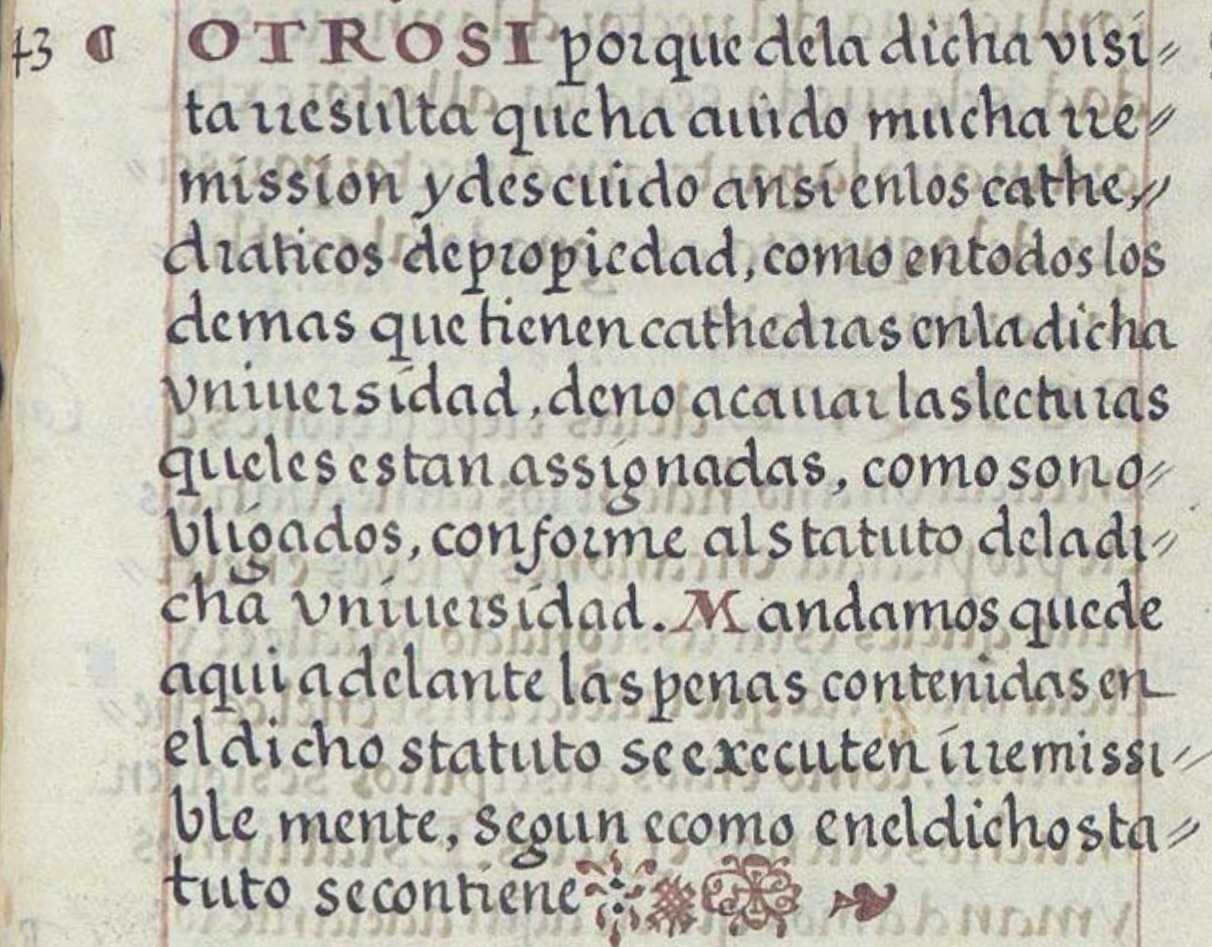 43 ¶ OTROSI porque dela dicha visi=
ta rresulta que ha auido mucha rre=
mission y descuido ansi enlos cathe=
draticos depropiedad, como entodos los
demas que tienen cathedras enla dicha
vniuersidad, deno acauar las lecturas
queles estan assignadas, como son o=
bligados, conforme al statuto dela di=
cha vniuersidad. Mandamos quede
aqui adelante las penas contenidas en
el dicho statuto se executen irremissi=
ble mente, segun ecomo enel dicho sta=
tuto secontiene